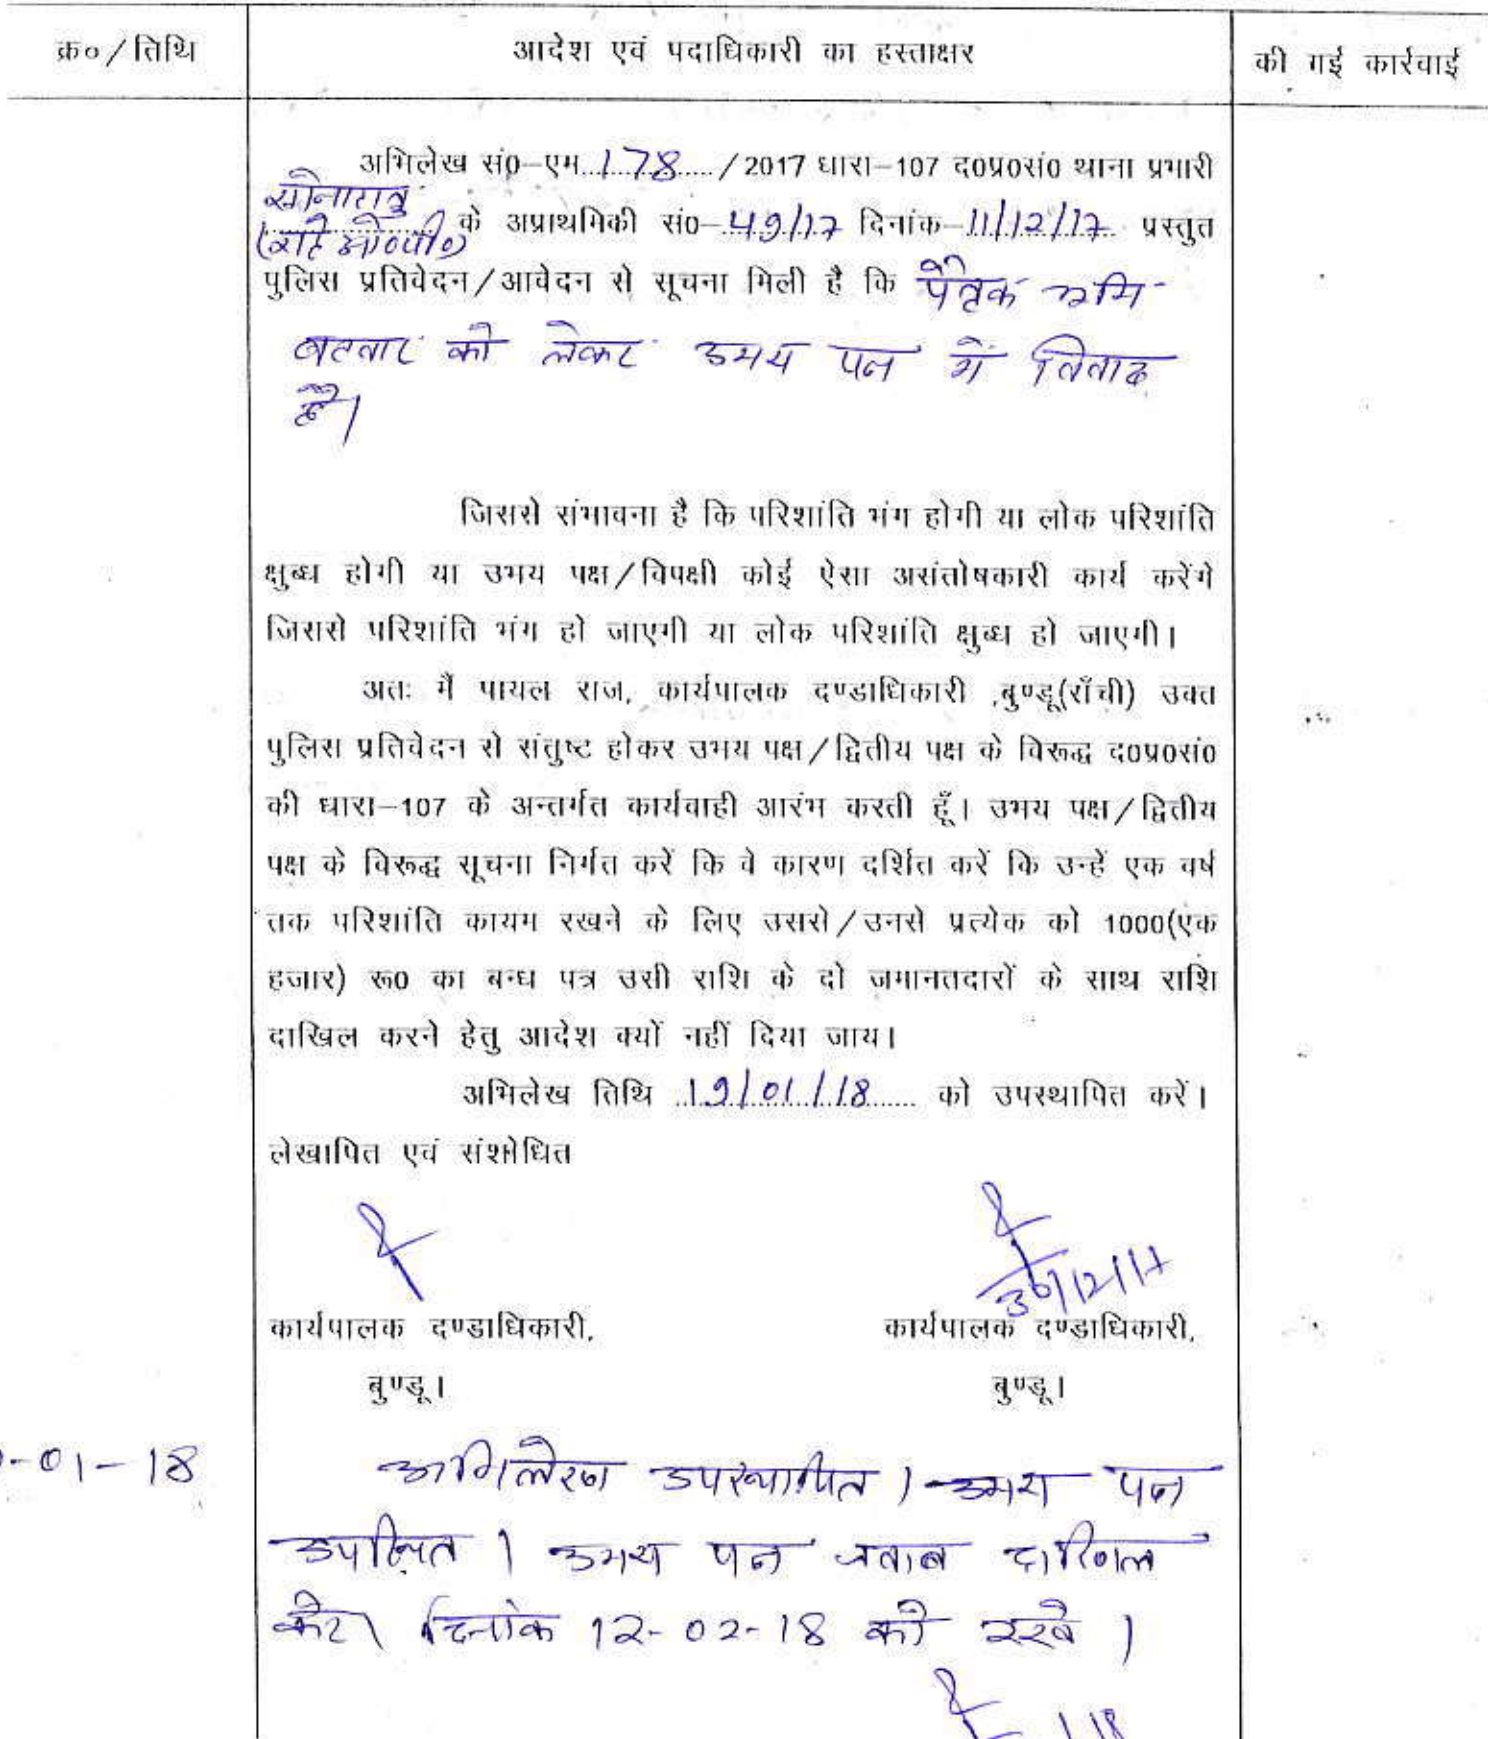 क्र०/तिथि
आदेश एवं पदाधिकारी का हस्ताक्षर
की गई कार्रवाई
अभिलेख सं0–एम 178 /2017 धारा–107 द0प्र0सं0 थाना प्रभारी
सोनाहातु
(राहे ओ०पी०) के अप्राथमिकी सं0–49/17 दिनांक–11/12/17 प्रस्तुत
पुलिस प्रतिवेदन/आवेदन से सूचना मिली है कि पैतृक भूमि
बटवारा को लेकर उभय पक्ष में विवाद
है।
जिससे संभावना है कि परिशांति भंग होगी या लोक परिशांति
क्षुब्ध होगी या उभय पक्ष/विपक्षी कोई ऐसा असंतोषकारी कार्य करेंगे
जिससे परिशांति भंग हो जाएगी या लोक परिशांति क्षुब्ध हो जाएगी।
अतः मैं पायल राज, कार्यपालक दण्डाधिकारी ,बुण्डू(राँची) उक्त
पुलिस प्रतिवेदन से संतुष्ट होकर उभय पक्ष/द्वितीय पक्ष के विरूद्ध द0प्र0सं0
की धारा–107 के अन्तर्गत कार्यवाही आरंभ करती हूँ। उभय पक्ष/द्वितीय
पक्ष के विरूद्ध सूचना निर्गत करें कि वे कारण दर्शित करें कि उन्हें एक वर्ष
तक परिशांति कायम रखने के लिए उससे/उनसे प्रत्येक को 1000(एक
हजार) रू0 का बन्ध पत्र उसी राशि के दो जमानतदारों के साथ राशि
दाखिल करने हेतु आदेश क्यों नहीं दिया जाय।
अभिलेख तिथि 19/01/18 को उपस्थापित करें।
लेखापित एवं संशोधित
30/12/17
कार्यपालक दण्डाधिकारी,
कार्यपालक दण्डाधिकारी,
बुण्डू।
बुण्डू।
-01-18
अभिलेख उपस्थापित। उभय पक्ष
उपस्थित। उभय पक्ष जवाब दाखिल
करें। दिनांक 12-02-18 को रखें।